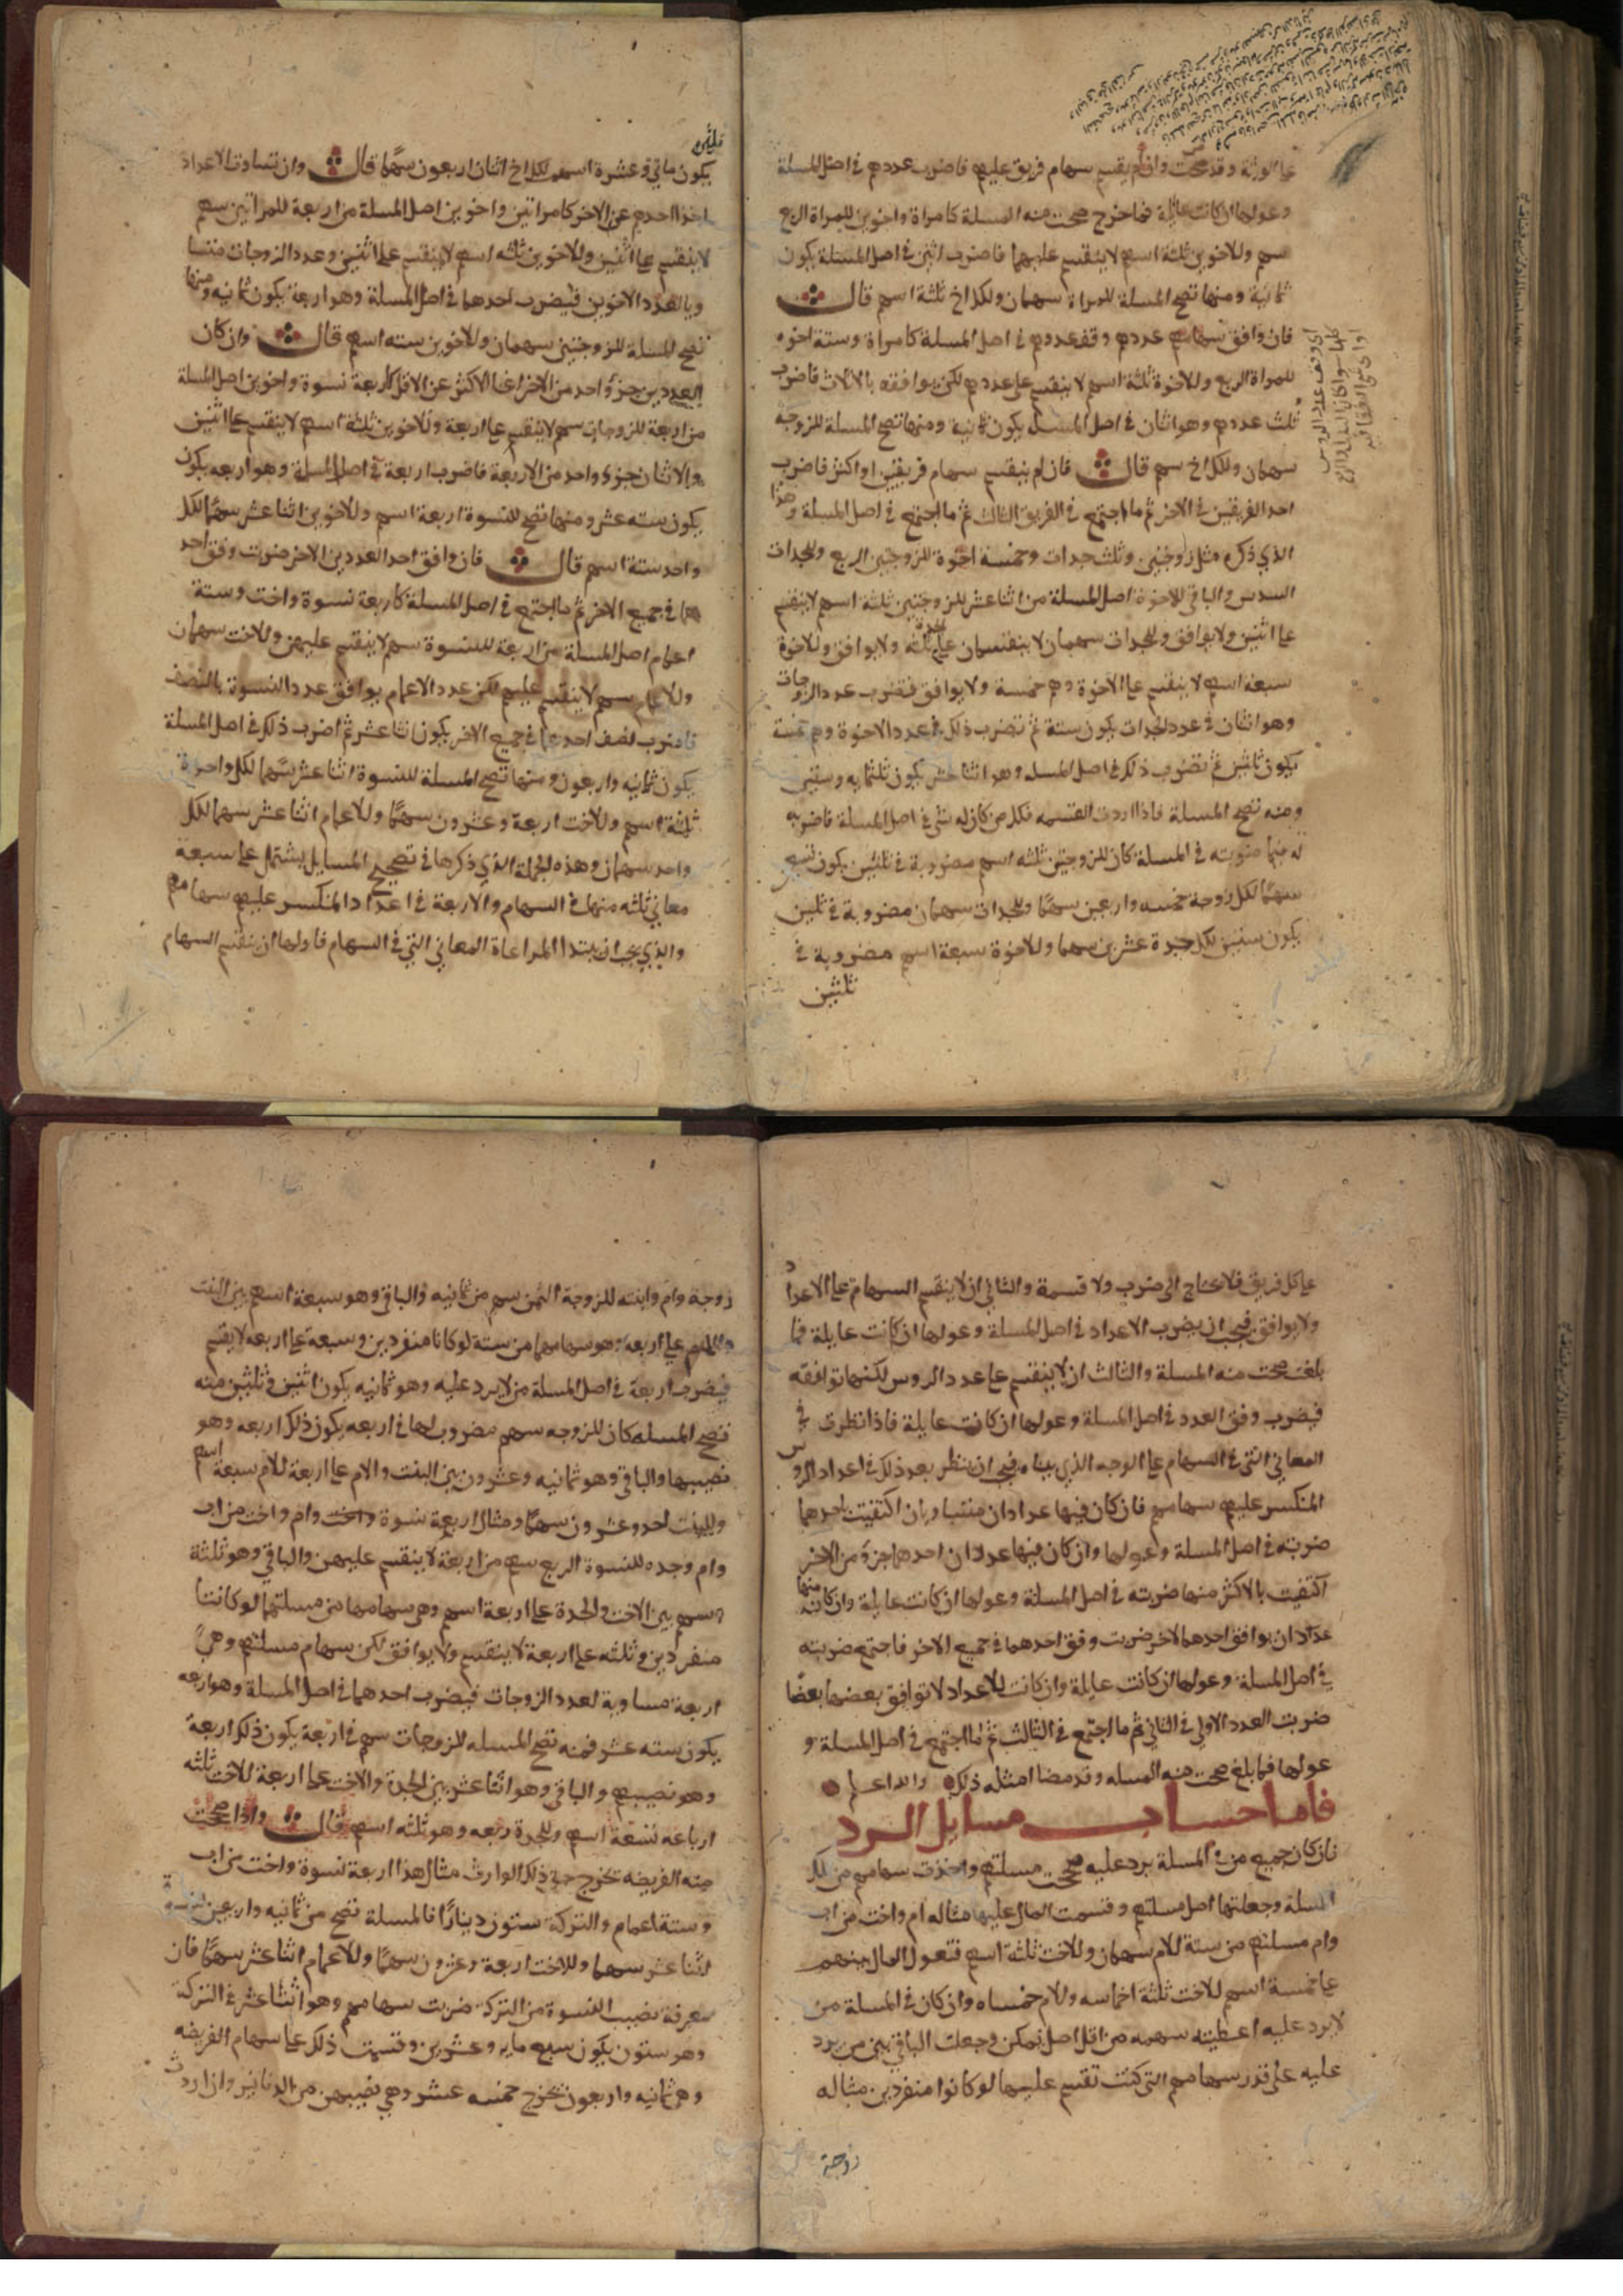 على الورثة وقد صحت وان لم ينقسم سهام فريق عليهم فاضرب عددهم في اصل المسلة
وعولها ان كانت عايلة فما خرج صحت منه المسلة كامراة واخوين للمراة الربع
سهم وللاخوين ثلثة اسهم لا ينقسم عليهما فاضرب اثنين في اصل المسلة يكون
ثمانية ومنها تصح المسلة للمراة سهمان ولكل اخ ثلثة اسهم قال
فان وافق سهامهم عددهم وفق عددهم في اصل المسلة كامراة وستة اخوه
للمراة الربع وللاخوة ثلثة اسهم لا ينقسم على عددهم لكن يوافقه بالاثلاث فاضرب
ثلث عددهم وهو اثنان في اصل المسلة يكون ثمانية ومنها تصح المسلة للزوجة
سهمان ولكل اخ سهم قال فان لم ينقسم سهام فريقين او اكثر فاضرب
احد الفريقين في الاخر ثم ما اجتمع في الفريق الثالث ثم ما اجتمع في اصل المسلة وهذا
الذي ذكره مثل زوجتين وثلث جدات وخمسة اخوة للزوجتين الربع وللجدات
السدس والباقي للاخوة اصل المسلة من اثنا عشر للزوجتين ثلثة اسهم لا ينقسم
على اثنين ولا يوافق وللجدات سهمان لا ينقسمان على ثلثة ولا يوافق وللاخوة
سبعة اسهم لا ينقسم على الاخوة وهم خمسة ولا يوافق فتضرب عدد الزوجات
وهو اثنان في عدد الجدات يكون ستة ثم تضرب ذلك في عدد الاخوة وهم خمسة
يكون ثلثين ثم تضرب ذلك في اصل المسله وهو اثنا عشر يكون ثلثمايه وستين
ومنه تصح المسلة فاذا اردت القسمه فكل من كان له شي في اصل المسلة فاضربه
له فيما ضربته في المسلة كان للزوجتين ثلثه اسهم مضروبة في ثلثين يكون تسعين
سهما لكل زوجة خمسه واربعين سهما وللجدات سهمان مضروبة في ثلثين
يكون ستين لكل جدة عشرين سهما وللاخوة سبعة اسهم مضروبة في
ثلثين
ثلثين
يكون مايتي وعشرة اسهم لكل اخ اثنان اربعون سهما قال وان تساوت الاعداد
اجزا احدهم عن الاخر كامراتين واخوين اصل المسلة من اربعة للمراتين سهم
لا ينقسم على اثنين وللاخوين ثلثه اسهم لا ينقسم على اثنين وعدد الزوجات متسا
ويا لعدد الاخوين فيضرب احدهما في اصل المسلة وهو اربعة يكون ثمانيه ومنها
تصح المسلة للزوجتين سهمان وللاخوين سته اسهم قال وان كان
العددين جزؤ واحد من الاخر اغنا الاكثر عن الاقل كاربعة نسوة واخوين اصل المسلة
من اربعة للزوجات سهم لا ينقسم على اربعة وللاخوين ثلثة اسهم لا ينقسم على اثنين
والاثنان جزؤ واحد من الاربعة فاضرب اربعة في اصل المسلة وهو اربعه يكون
يكون سته عشر ومنها تصح للنسوة اربعة اسهم وللاخوين اثنا عشر سهما لكل
واحد ستة اسهم قال فان وافق احد العددين الاخر ضربت وفق احد
هما في جميع الاخر ثم ما اجتمع في اصل المسلة كاربعة نسوة واخت وستة
اعمام اصل المسلة من اربعة للنسوة سهم لا ينقسم عليهن وللاخت سهمان
وللاعمام سهم لا ينقسم عليهم لكن عدد الاعمام يوافق عدد النسوة بالنصف
فاضرب نصف احدهما في جميع الاخر يكون اثنا عشر ثم اضرب ذلك في اصل المسلة
يكون ثمانيه واربعون ومنها تصح المسلة للنسوة اثنا عشر سهما لكل واحدة
ثلثة اسهم وللاخت اربعة وعشرون سهما وللاعمام اثنا عشر سهما لكل
واحد سهمان وهذه الجملة الذي ذكرها في تصحيح المسايل يشتمل على سبعة
معاني ثلثه منها في السهام والاربعة في اعداد المنكسر عليهم سهامهم
والذي يجب ان يبتدا المراعاة المعاني التي في السهام فاولها ان ينقسم السهام
على كل فريق فلا يحتاج الى ضرب ولا قسمة والثاني ان لا ينقسم السهام على الاعداد
ولا يوافق فيجب ان يضرب الاعداد في اصل المسلة وعولها ان كانت عايلة فما
بلغت صحت منه المسلة والثالث ان لا ينقسم على عدد الروس لكنها توافقه
فيضرب وفق العدد في اصل المسلة وعولها ان كانت عايلة فاذا نظرت في
المعاني التي في السهام على الوجه الذي بيناه فيجب ان ينظر بعد ذلك في اعداد الروس
المنكسر عليهم سهامهم فان كان فيها عدادان متساويان اكتفيت باحدهما
ضربته في اصل المسلة وعولها وان كان فيها عدادان احدهما جزؤ من الاخر
اكتفيت بالاكثر منها ضربته في اصل المسلة وعولها ان كانت عايلة وان كان منها
عدادان يوافق احدهما الاخر ضربت وفق احدهما في جميع الاخر فما اجتمع ضربته
في اصل المسلة وعولها ان كانت عايلة وان كانت الاعداد لا توافق بعضها بعضا
ضربت العدد الاول في الثاني ثم ما اجتمع في الثالث ثم ما اجتمع في اصل المسلة و
عولها فما بلغ صحت منه المسله وقد مضا امثله ذلك والله اعلم
فاما حساب مسايل الرد
فان كان جميع من في المسلة يرد عليه صححت مسلتهم واخذت سهامهم من تلك
المسلة وجعلتها اصل مسلتهم وقسمت المال عليها مثاله ام واخت من اب
وام مسلتهم من ستة للام سهمان وللاخت ثلثة اسهم فتعول المال بينهم
على خمسة اسهم للاخت ثلثة اخماسه وللام خمساه وان كان في المسلة من
لا يرد عليه اعطيته سهمه من اقل اصل يمكن وجعلت الباقي بين من يرد
عليه على قدر سهامهم التي كنت تقسم عليها لو كانوا منفردين مثاله
زوجة
زوجة وام وابنته للزوجة الثمن سهم من ثمانيه والباقي وهو سبعة اسهم بين البنت
والام على اربعه وهو سهامهما من ستة لو كانا منفردين وسبعه على اربعه لا يقسم
فيضرب اربعة في اصل المسلة من لا يرد عليه وهو ثمانيه يكون اثنين وثلثين منه
تصح المسله كان للزوجه سهم مضروب لها في اربعه يكون ذلك اربعه وهو
نصيبها والباقي وهو ثمانيه وعشرون بين البنت والام على اربعة للام سبعة اسهم
وللبنت احد وعشرون سهما ومثال اربعة نسوة واخت وام واخت من اب
وام وجده للنسوة الربع سهم من اربعة لا ينقسم عليهن والباقي وهو ثلثة
اسهم بين الاخت والجدة على اربعة اسهم وهي سهامهما من مسلتهما لو كانتا
منفردين وثلثه على اربعة لا ينقسم ولا يوافق لكن سهام مسلتهم وهي
اربعة مساوية لعدد الزوجات فيضرب احدهما في اصل المسلة وهو اربعه
يكون سته عشر فمنه تصح المسله للزوجات سهم في اربعة يكون ذلك اربعة
وهو نصيبهم والباقي وهو اثنا عشر بين الجدة والاخت على اربعة للاخت ثلثه
ارباعه تسعة اسهم وللجدة ربعه وهو ثلثه اسهم قال واذا صحت
منه الفريضه تخرج حق ذلك الوارث مثال هذا اربعة نسوة واخت من اب
وستة اعمام والتركة ستون دينارا فالمسلة تصح من ثمانيه واربعين للنسوة
اثنا عشر سهما وللاخت اربعة وعشرون سهما وللاعمام اثنا عشر سهما فان
معرفة نصيب النسوة من التركة ضربت سهامهم وهو اثنا عشر في التركة
وهو ستون يكون سبع مايه وعشرين وقسمت ذلك على سهام الفريضه
وهي ثمانيه واربعون يخرج خمسه عشر وهي نصيبهن من الدنانير وان اردت